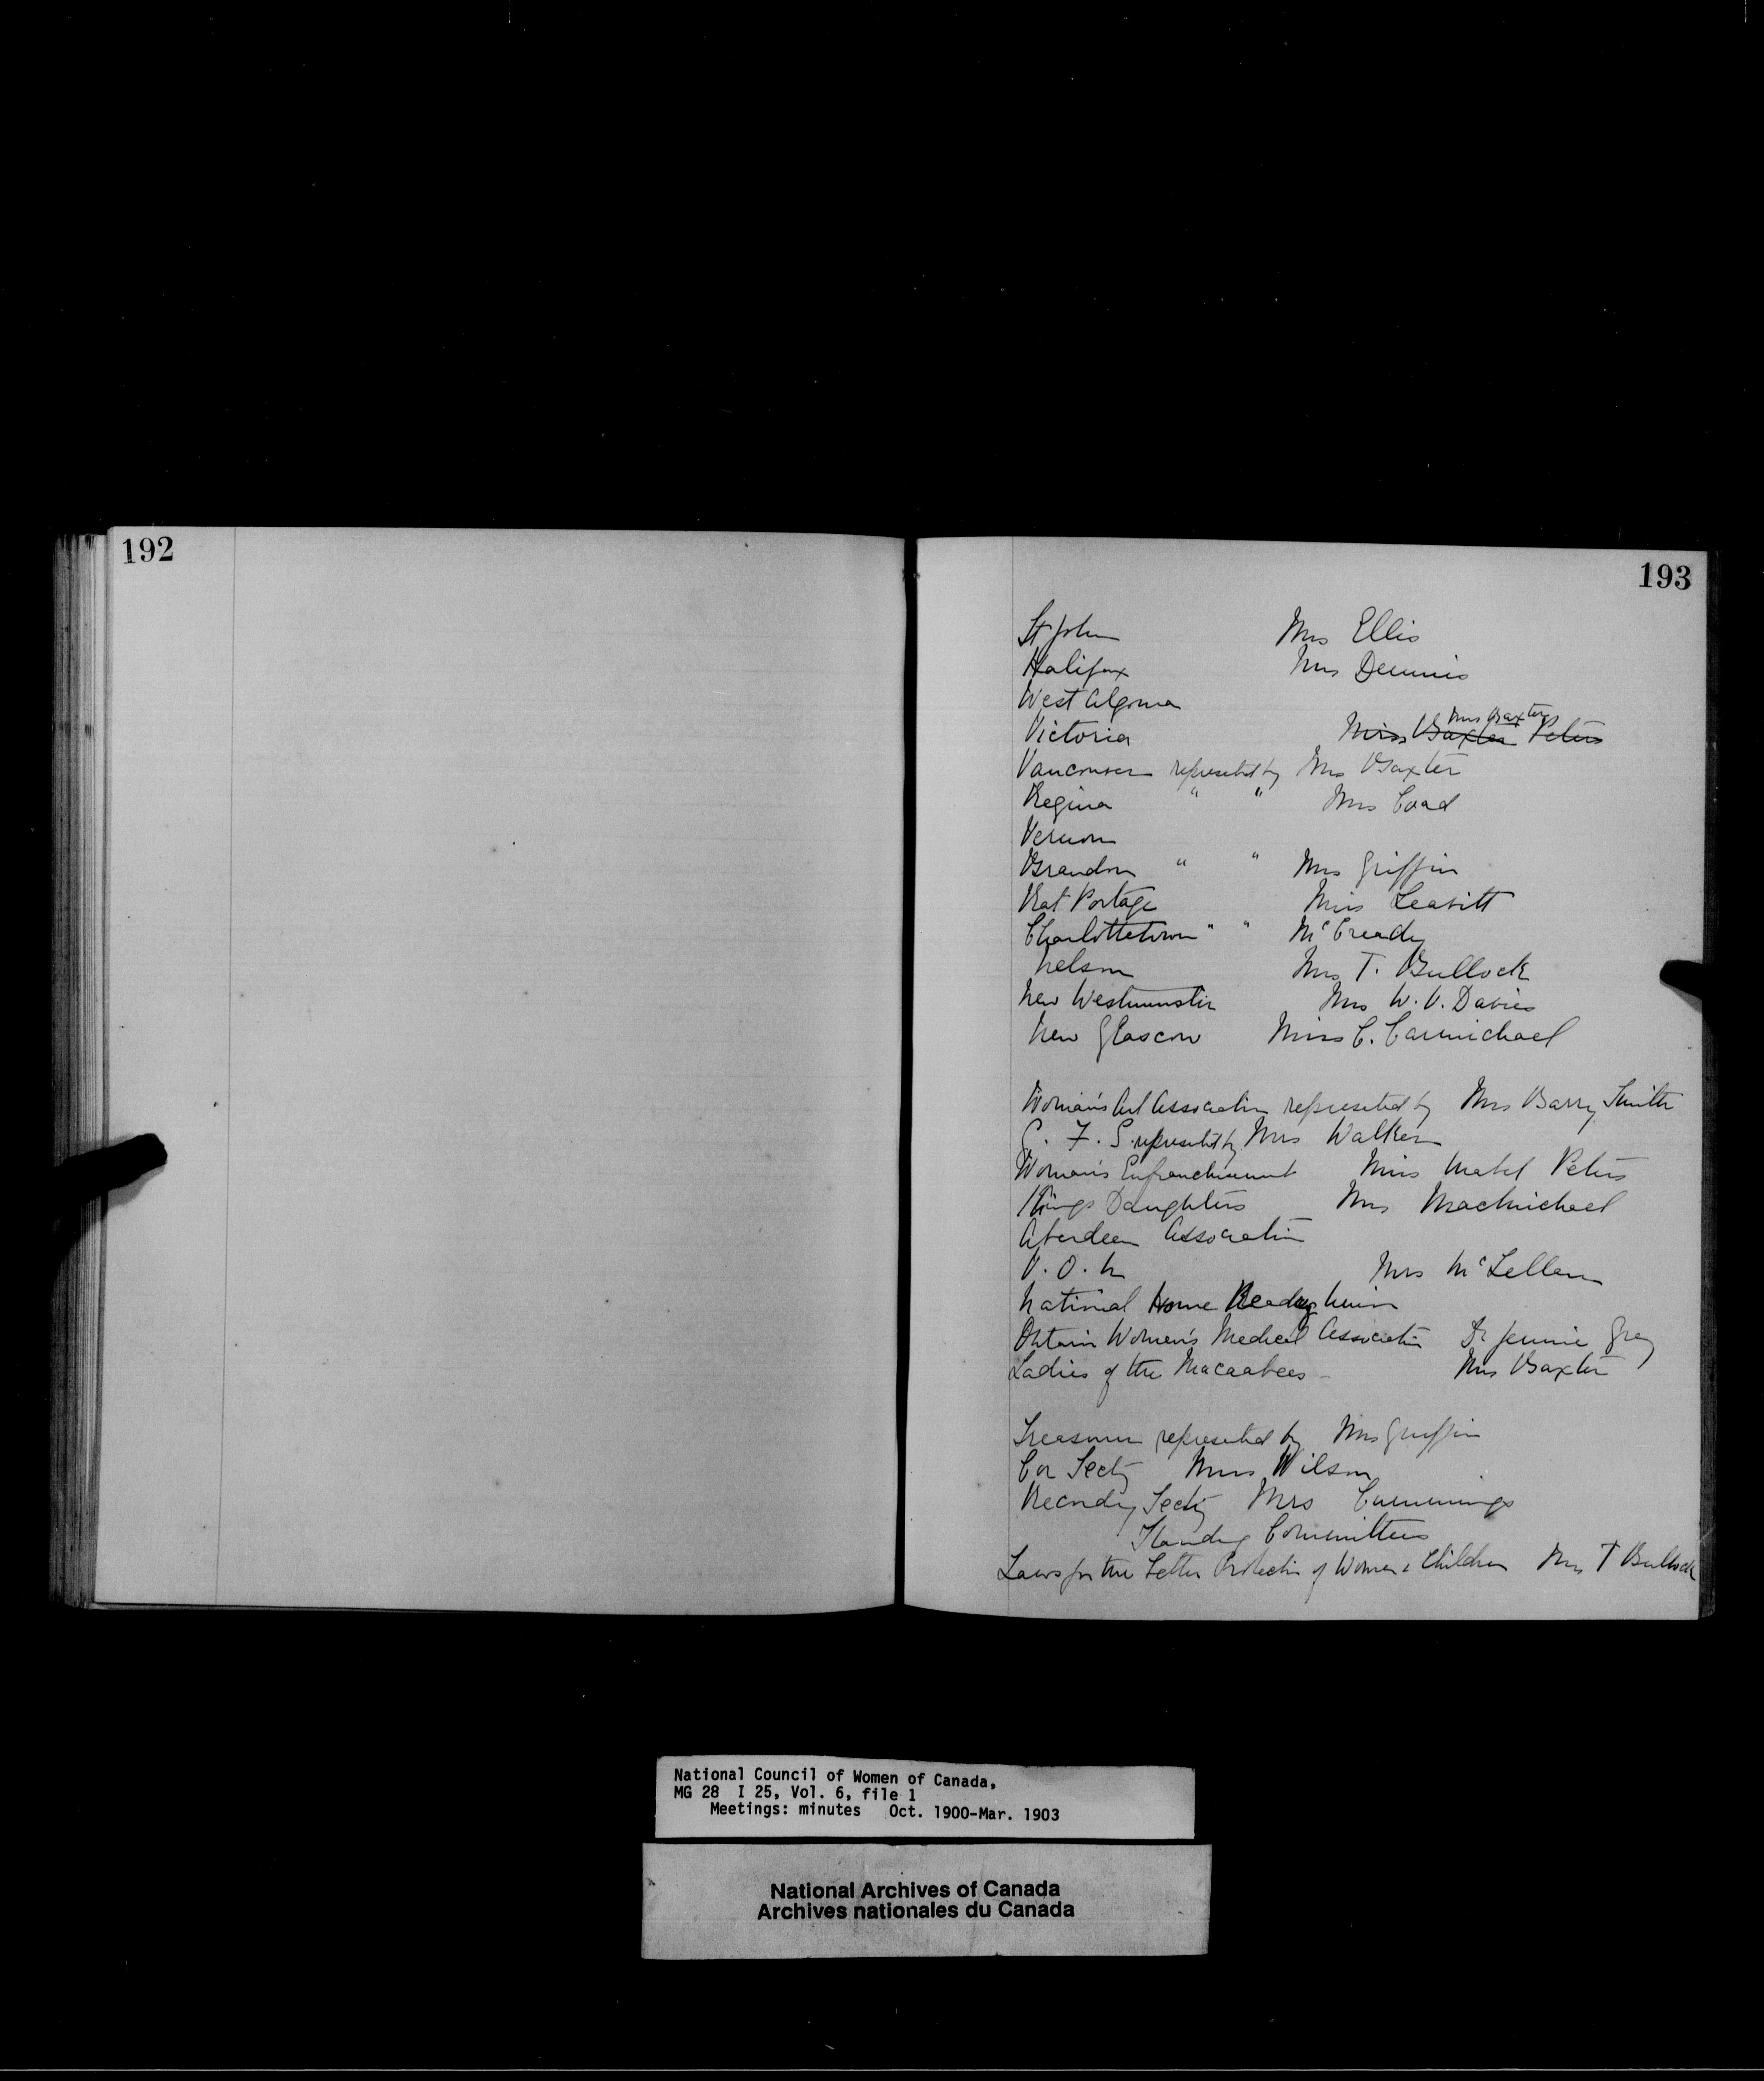 192
193
St John Mrs Ellis
Halifax Mrs Dennis
West Algoma
Mrs Baxter
Victoria Miss Baxter Peters
Vancouver represented by Mrs Baxter
Regina " " Mrs Coad
Vernon
Brandon " " Mrs Griffin
Rat Portage Miss Leavitt
Charlottetown " " McCready
Nelson Mrs T. Bullock
New Westminster Mrs W. V. Davies
New Glascow Miss C. Carmichael
Woman's Art Association represented by Mrs Barry Smith
G. F. S. represented by Mrs Walker
Woman's Enfranchisement Miss Mabel Peters
Kings Daughters Mrs Macmichael
Aberdeen Association
V. O. N Mrs McLellan
National Home Reading Union
Ontario Women's Medical Association Dr Jennie Gray
Ladies of the Macaabees - Mrs Baxter
Treasurer represented by Mrs Griffin
Cor Secty Miss Wilson
Recording Secty Mrs Cummings
Standing Committees
Laws for the Better Protection of Women & Children Mrs T Bullock
National Council of Women of Canada,
MG 28 I 25, Vol. 6, file 1
Meetings: minutes Oct. 1900-Mar. 1903
National Archives of Canada
Archives nationales du Canada